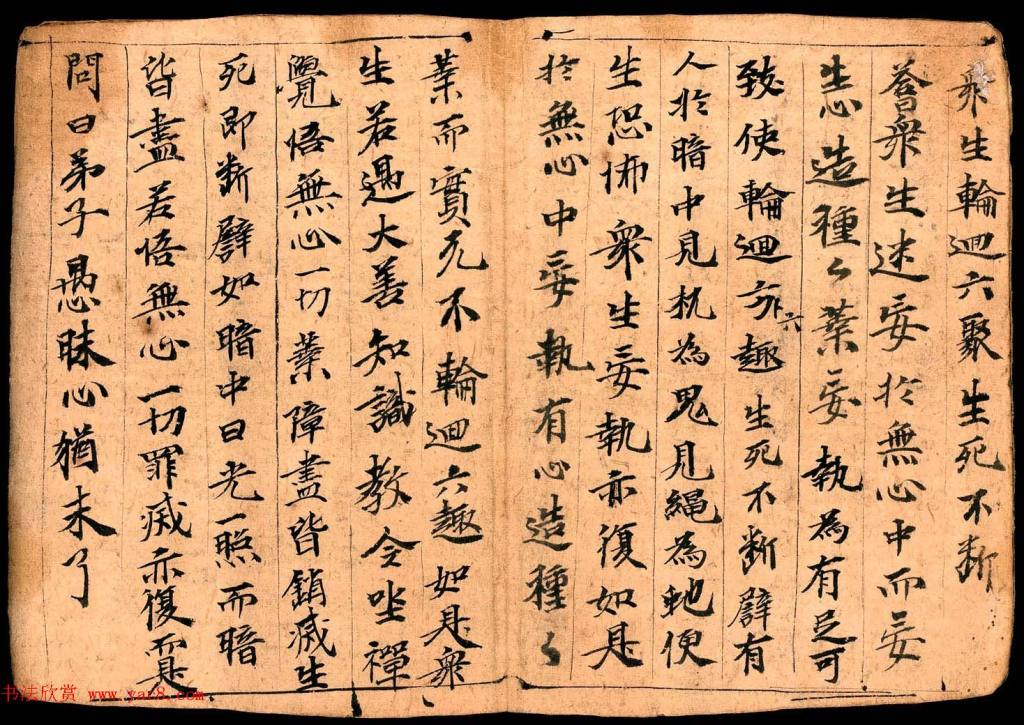 衆生輪迴六聚生死不斷
答衆生迷妄於無心中而妄
生心造種々業妄執為有足可
致使輪迴於六趣生死不斷譬有
人於暗中見杌為鬼見繩為虵便
生恐怖衆生妄執亦復如是
於無心中妄執有心造種々
業而實无不輪迴六趣如是衆
生若遇大善知識教令坐禪
覺悟無心一切業障盡皆銷滅生
死即斷譬如暗中日光一照而暗
皆盡若悟無心一切罪滅亦復而是
問曰弟子愚昧心猶未了
书法欣赏 www.yac8.com